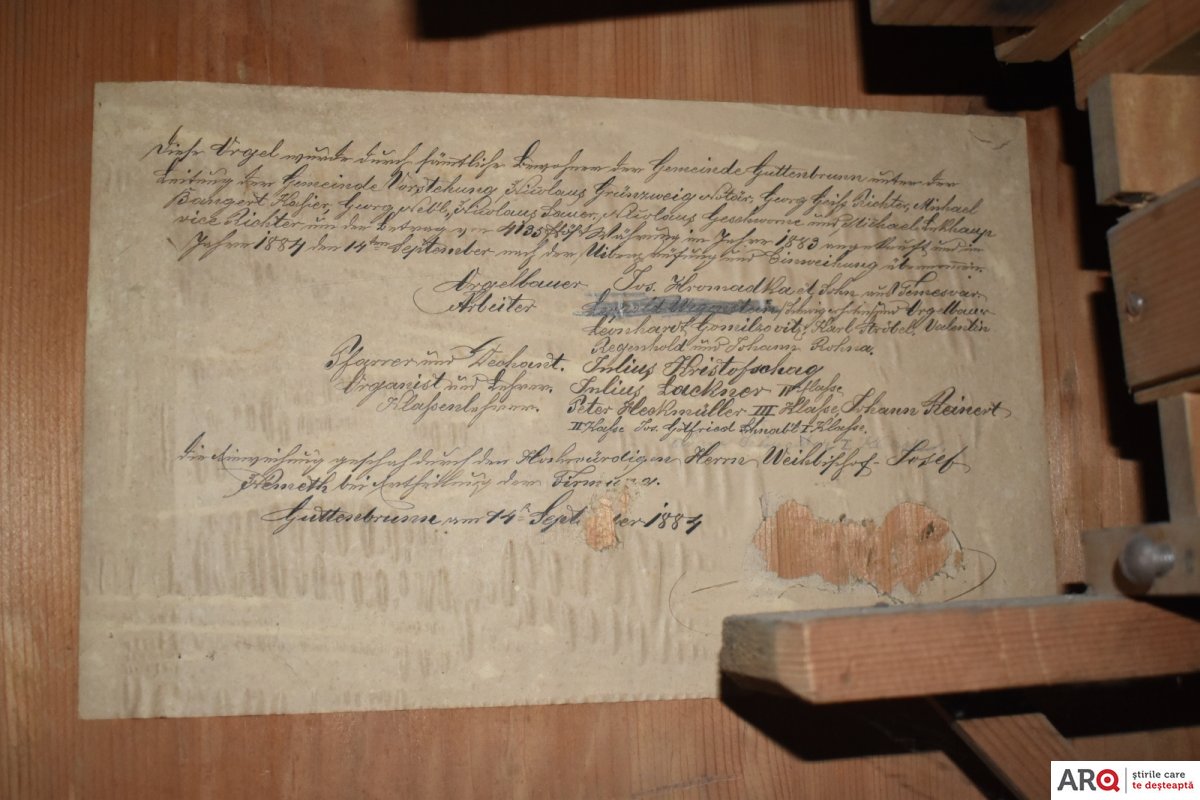 Diese Orgel wurde durch sämtliche Bewohner der Gemeinde Guttenbrunn unter der
Leitung der Gemeinde Vorstehung Nikolaus Grünzweig Notär, Georg Richter, Michael
Bangert Kassier, Georg Nikolaus Nikolaus und Michael
vice Richter um den Betrag von 4135 Währung im Jahre 1883 angekauft und im
Jahre 1884 den 14ten September nach der und Einweihung übernommen
Orgelbauer Jos. Hromadka et Sohn aus Temesvar
Arbeiter Leopold Wegenstein, und Orgelbauer
Leonhardt Karl Ströbel, Valentin
Regenhold und Johann Rohna.
Pfarrer und Dechant. Julius Kristofschag
Organist und Lehrer. Julius Lackner IV Klasse
Klassenlehrer. Peter Heckmüller III Klasse, Johann Reinert
II Klasse Jos. Gotfried Schnabl I Klasse.
die Einweihung geschah durch den Hochwürdigen Herrn Weihbischof Josef
Nemeth bei Ertheilung der Firmung.
Guttenbrunn am 14 Sept er 1884
ARQ știrile care
te deșteaptă